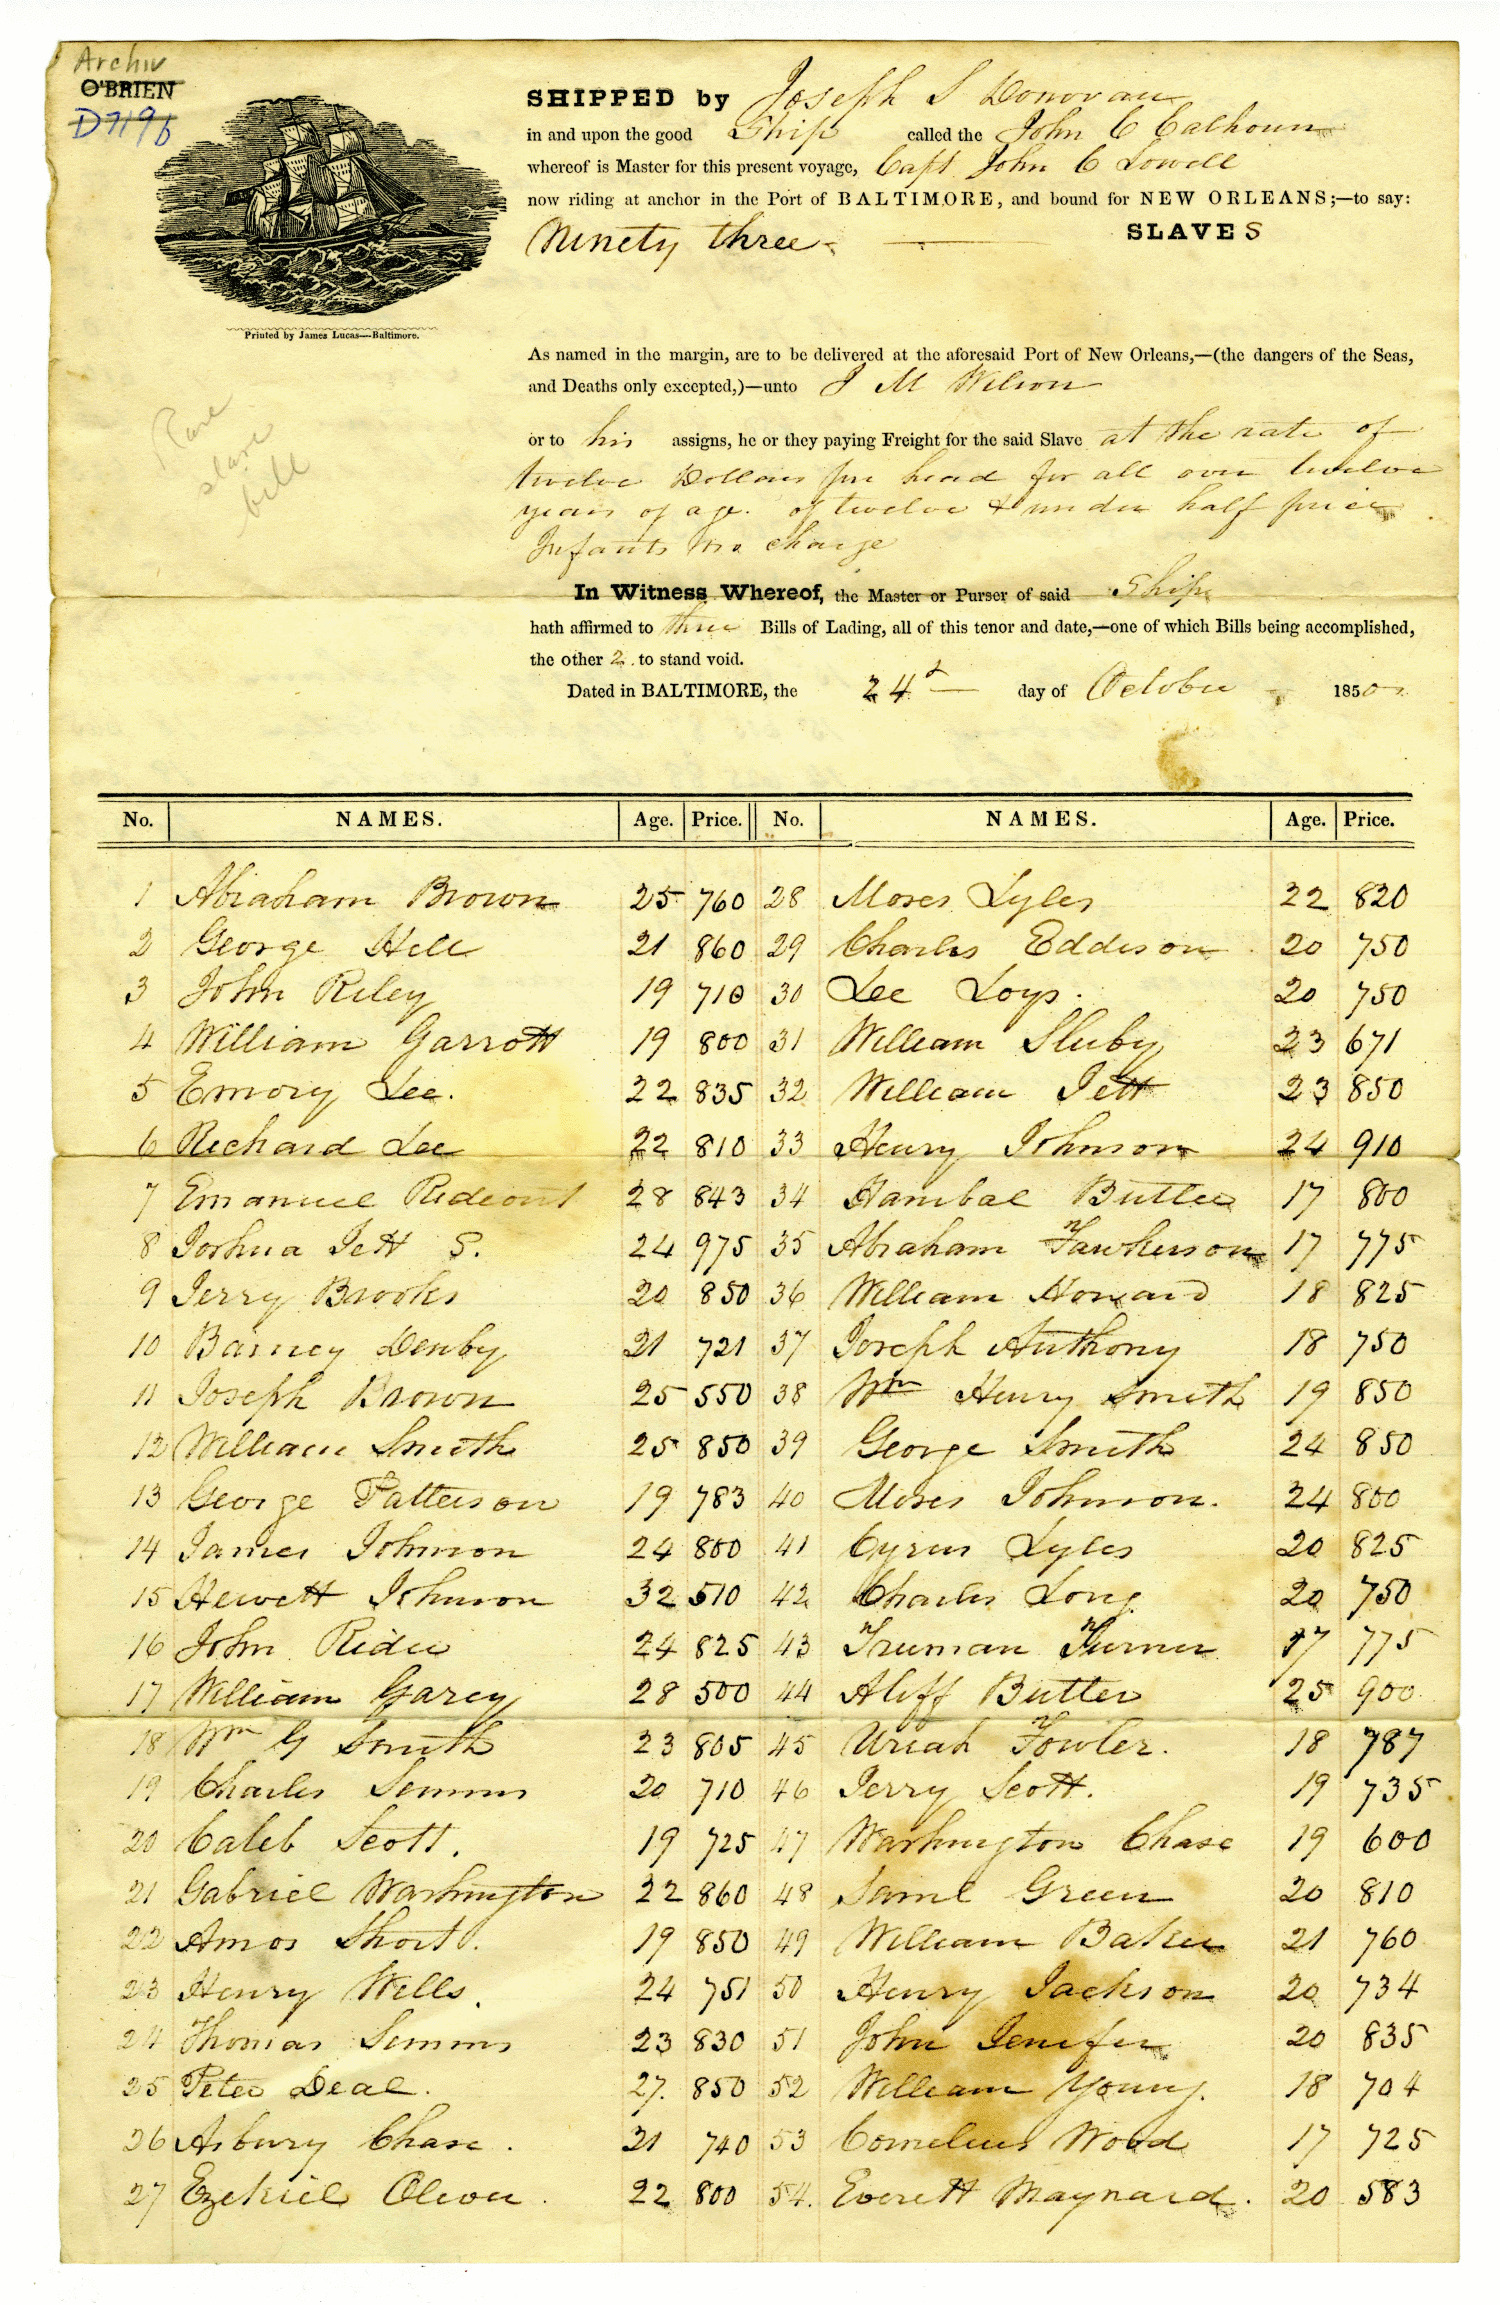 Archiv
O'BRIEN
D7196
Printed by James Lucas—Baltimore.
Rare
slave
bill
SHIPPED by Joseph S Donovan
in and upon the good Ship called the John C Calhoun
whereof is Master for this present voyage, Capt John C Lowell
now riding at anchor in the Port of BALTIMORE, and bound for NEW ORLEANS;—to say:
Ninety three — SLAVES
As named in the margin, are to be delivered at the aforesaid Port of New Orleans,—(the dangers of the Seas,
and Deaths only excepted,)—unto J M Wilson
or to his assigns, he or they paying Freight for the said Slave at the rate of
twelve Dollars per head for all over twelve
years of age. of twelve & under half price
Infants no charge
In Witness Whereof, the Master or Purser of said Ship
hath affirmed to three Bills of Lading, all of this tenor and date,—one of which Bills being accomplished,
the other 2 to stand void.
Dated in BALTIMORE, the 24 day of October 1850
No. NAMES. Age. Price. No. NAMES. Age. Price.
1 Abraham Brown 25 760 28 Moses Lyles 22 820
2 George Hill 21 860 29 Charles Eddison 20 750
3 John Riley 19 710 30 Lee Loys. 20 750
4 William Garrott 19 800 31 William Sluby 23 671
5 Emory Lee. 22 835 32 William Jett 23 850
6 Richard Lee 22 810 33 Henry Johnson 24 910
7 Emanuel Rideout 28 843 34 Hanibal Butler 17 800
8 Joshua Jett S. 24 975 35 Abraham Fawkerson 17 775
9 Jerry Brooks 20 850 36 William Howard 18 825
10 Barney Denby 21 721 37 Joseph Anthony 18 750
11 Joseph Brown 25 550 38 Wm Henry Smith 19 850
12 William Smith 25 850 39 George Smith 24 850
13 George Patterson 19 783 40 Moses Johnson. 24 800
14 James Johnson 24 800 41 Cyrus Lyles 20 825
15 Hewett Johnson 32 510 42 Charles Long 20 750
16 John Rider 24 825 43 Truman Turner 17 775
17 William Garey 28 500 44 Aliff Butler 25 900
18 Wm G Smith 23 805 45 Uriah Fowler. 18 787
19 Charles Semms 20 710 46 Jerry Scott. 19 735
20 Caleb Scott. 19 725 47 Washington Chase 19 600
21 Gabriel Washington 22 860 48 Saml Green 20 810
22 Amos Short. 19 850 49 William Baker 21 760
23 Henry Wells. 24 751 50 Henry Jackson 20 734
24 Thomas Semms 23 830 51 John Jenifer 20 835
25 Peter Deal. 27. 850 52 William Young. 18 704
26 Asbury Chase. 21 740 53 Cornelius Wood 17 725
27 Ezekiel Oliver. 22 800 54. Everett Maynard. 20 583